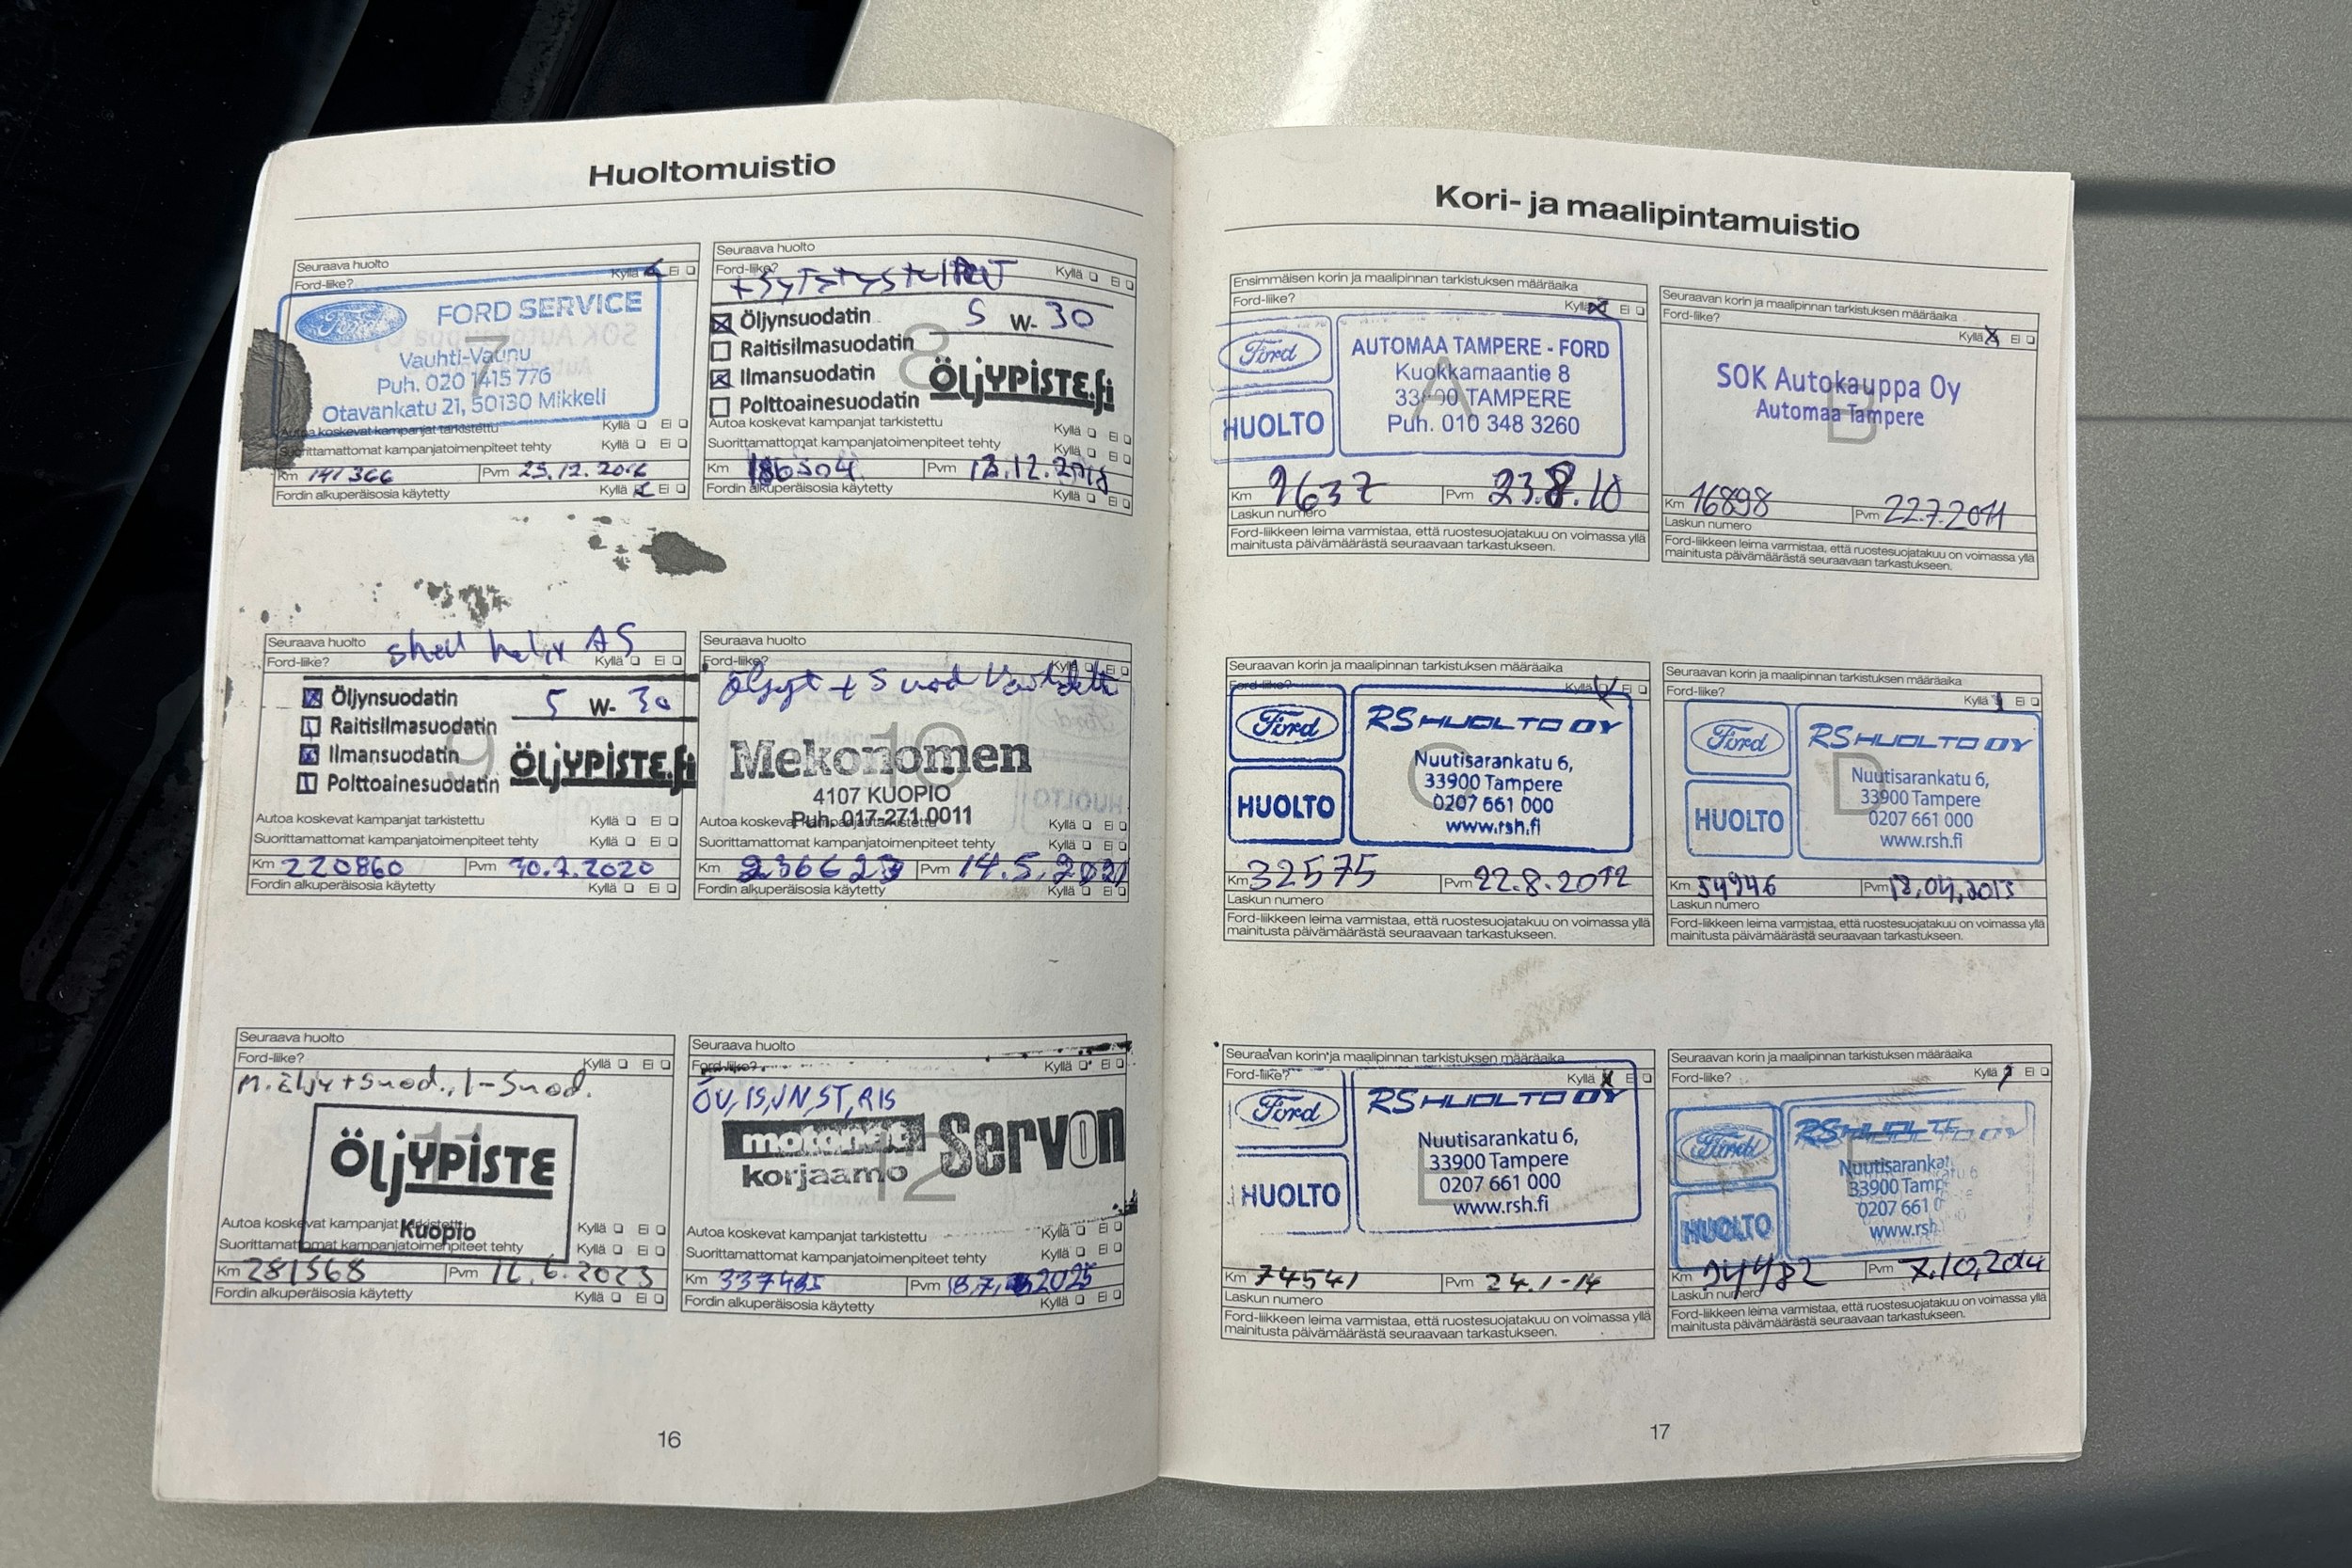 Huoltomuistio
Seuraava huolto
Ford-liike?
Kyllä Ei
FORD SERVICE
Ford
Vauhti-Vaunu
7
Puh. 020 1415 776
Otavankatu 21, 50130 Mikkeli
Autoa koskevat kampanjat tarkistettu Kyllä Ei
Suorittamattomat kampanjatoimenpiteet tehty Kyllä Ei
Km 141366 Pvm 23.12.2016
Fordin alkuperäisosia käytetty Kyllä Ei
Seuraava huolto
Ford-liike? Kyllä Ei
+ sytytystulpat
Öljynsuodatin 5 W- 30
Raitisilmasuodatin
8
Ilmansuodatin ÖLJYPISTE.fi
Polttoainesuodatin
Autoa koskevat kampanjat tarkistettu Kyllä Ei
Suorittamattomat kampanjatoimenpiteet tehty Kyllä Ei
Km 186504 Pvm 13.12.2018
Fordin alkuperäisosia käytetty Kyllä Ei
Seuraava huolto
shell helix AS
Ford-liike? Kyllä Ei
Öljynsuodatin 5 W- 30
Raitisilmasuodatin
9
Ilmansuodatin ÖLJYPISTE.fi
Polttoainesuodatin
Autoa koskevat kampanjat tarkistettu Kyllä Ei
Suorittamattomat kampanjatoimenpiteet tehty Kyllä Ei
Km 220860 Pvm 30.7.2020
Fordin alkuperäisosia käytetty Kyllä Ei
Seuraava huolto
Ford-liike? Kyllä Ei
Öljyt + Suod
10
Mekonomen
4107 KUOPIO
Puh. 017-271 0011
Autoa koskevat kampanjat tarkistettu Kyllä Ei
Suorittamattomat kampanjatoimenpiteet tehty Kyllä Ei
Km 236623 Pvm 14.5.2021
Fordin alkuperäisosia käytetty Kyllä Ei
Seuraava huolto
Ford-liike? Kyllä Ei
M.öljy+suod., I-Suod.
11
ÖLJYPISTE
Kuopio
Autoa koskevat kampanjat tarkistettu Kyllä Ei
Suorittamattomat kampanjatoimenpiteet tehty Kyllä Ei
Km 281568 Pvm 16.6.2023
Fordin alkuperäisosia käytetty Kyllä Ei
Seuraava huolto
Ford-liike? Kyllä Ei
ÖV, IS, JN, ST, RIS
motonet Servon
korjaamo
12
Autoa koskevat kampanjat tarkistettu Kyllä Ei
Suorittamattomat kampanjatoimenpiteet tehty Kyllä Ei
Km 337485 Pvm 18.7.2025
Fordin alkuperäisosia käytetty Kyllä Ei
16
Kori- ja maalipintamuistio
Ensimmäisen korin ja maalipinnan tarkistuksen määräaika
Ford-liike? Kyllä Ei
Ford
HUOLTO
AUTOMAA TAMPERE - FORD
Kuokkamaantie 8
A
TAMPERE
Puh. 010 348 3260
Km 9637 Pvm 23.8.10
Laskun numero
Ford-liikkeen leima varmistaa, että ruostesuojatakuu on voimassa yllä
mainitusta päivämäärästä seuraavaan tarkastukseen.
Seuraavan korin ja maalipinnan tarkistuksen määräaika
Ford-liike?
Kyllä Ei
SOK Autokauppa Oy
Automaa Tampere
B
Km 16898 Pvm 22.7.2011
Laskun numero
Ford-liikkeen leima varmistaa, että ruostesuojatakuu on voimassa yllä
mainitusta päivämäärästä seuraavaan tarkastukseen.
Seuraavan korin ja maalipinnan tarkistuksen määräaika
Ford-liike? Kyllä Ei
Ford
HUOLTO
RS HUOLTO OY
Nuutisarankatu 6,
33900 Tampere
C
0207 661 000
www.rsh.fi
Km 32575 Pvm 22.8.2012
Laskun numero
Ford-liikkeen leima varmistaa, että ruostesuojatakuu on voimassa yllä
mainitusta päivämäärästä seuraavaan tarkastukseen.
Seuraavan korin ja maalipinnan tarkistuksen määräaika
Ford-liike? Kyllä Ei
Ford
HUOLTO
RS HUOLTO OY
Nuutisarankatu 6,
33900 Tampere
D
0207 661 000
www.rsh.fi
Km 54946 Pvm 18.04.2013
Laskun numero
Ford-liikkeen leima varmistaa, että ruostesuojatakuu on voimassa yllä
mainitusta päivämäärästä seuraavaan tarkastukseen.
Seuraavan korin ja maalipinnan tarkistuksen määräaika
Ford-liike? Kyllä Ei
Ford
HUOLTO
RS HUOLTO OY
Nuutisarankatu 6,
33900 Tampere
E
0207 661 000
www.rsh.fi
Km 74541 Pvm 24.1-14
Laskun numero
Ford-liikkeen leima varmistaa, että ruostesuojatakuu on voimassa yllä
mainitusta päivämäärästä seuraavaan tarkastukseen.
Seuraavan korin ja maalipinnan tarkistuksen määräaika
Ford-liike? Kyllä Ei
Ford
HUOLTO
33900
0207 661
www.rsh
Km 94482 Pvm 7.10.2014
Laskun numero
Ford-liikkeen leima varmistaa, että ruostesuojatakuu on voimassa yllä
mainitusta päivämäärästä seuraavaan tarkastukseen.
17